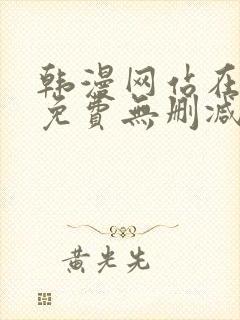 韩漫网站在
免費無删减
黄光先